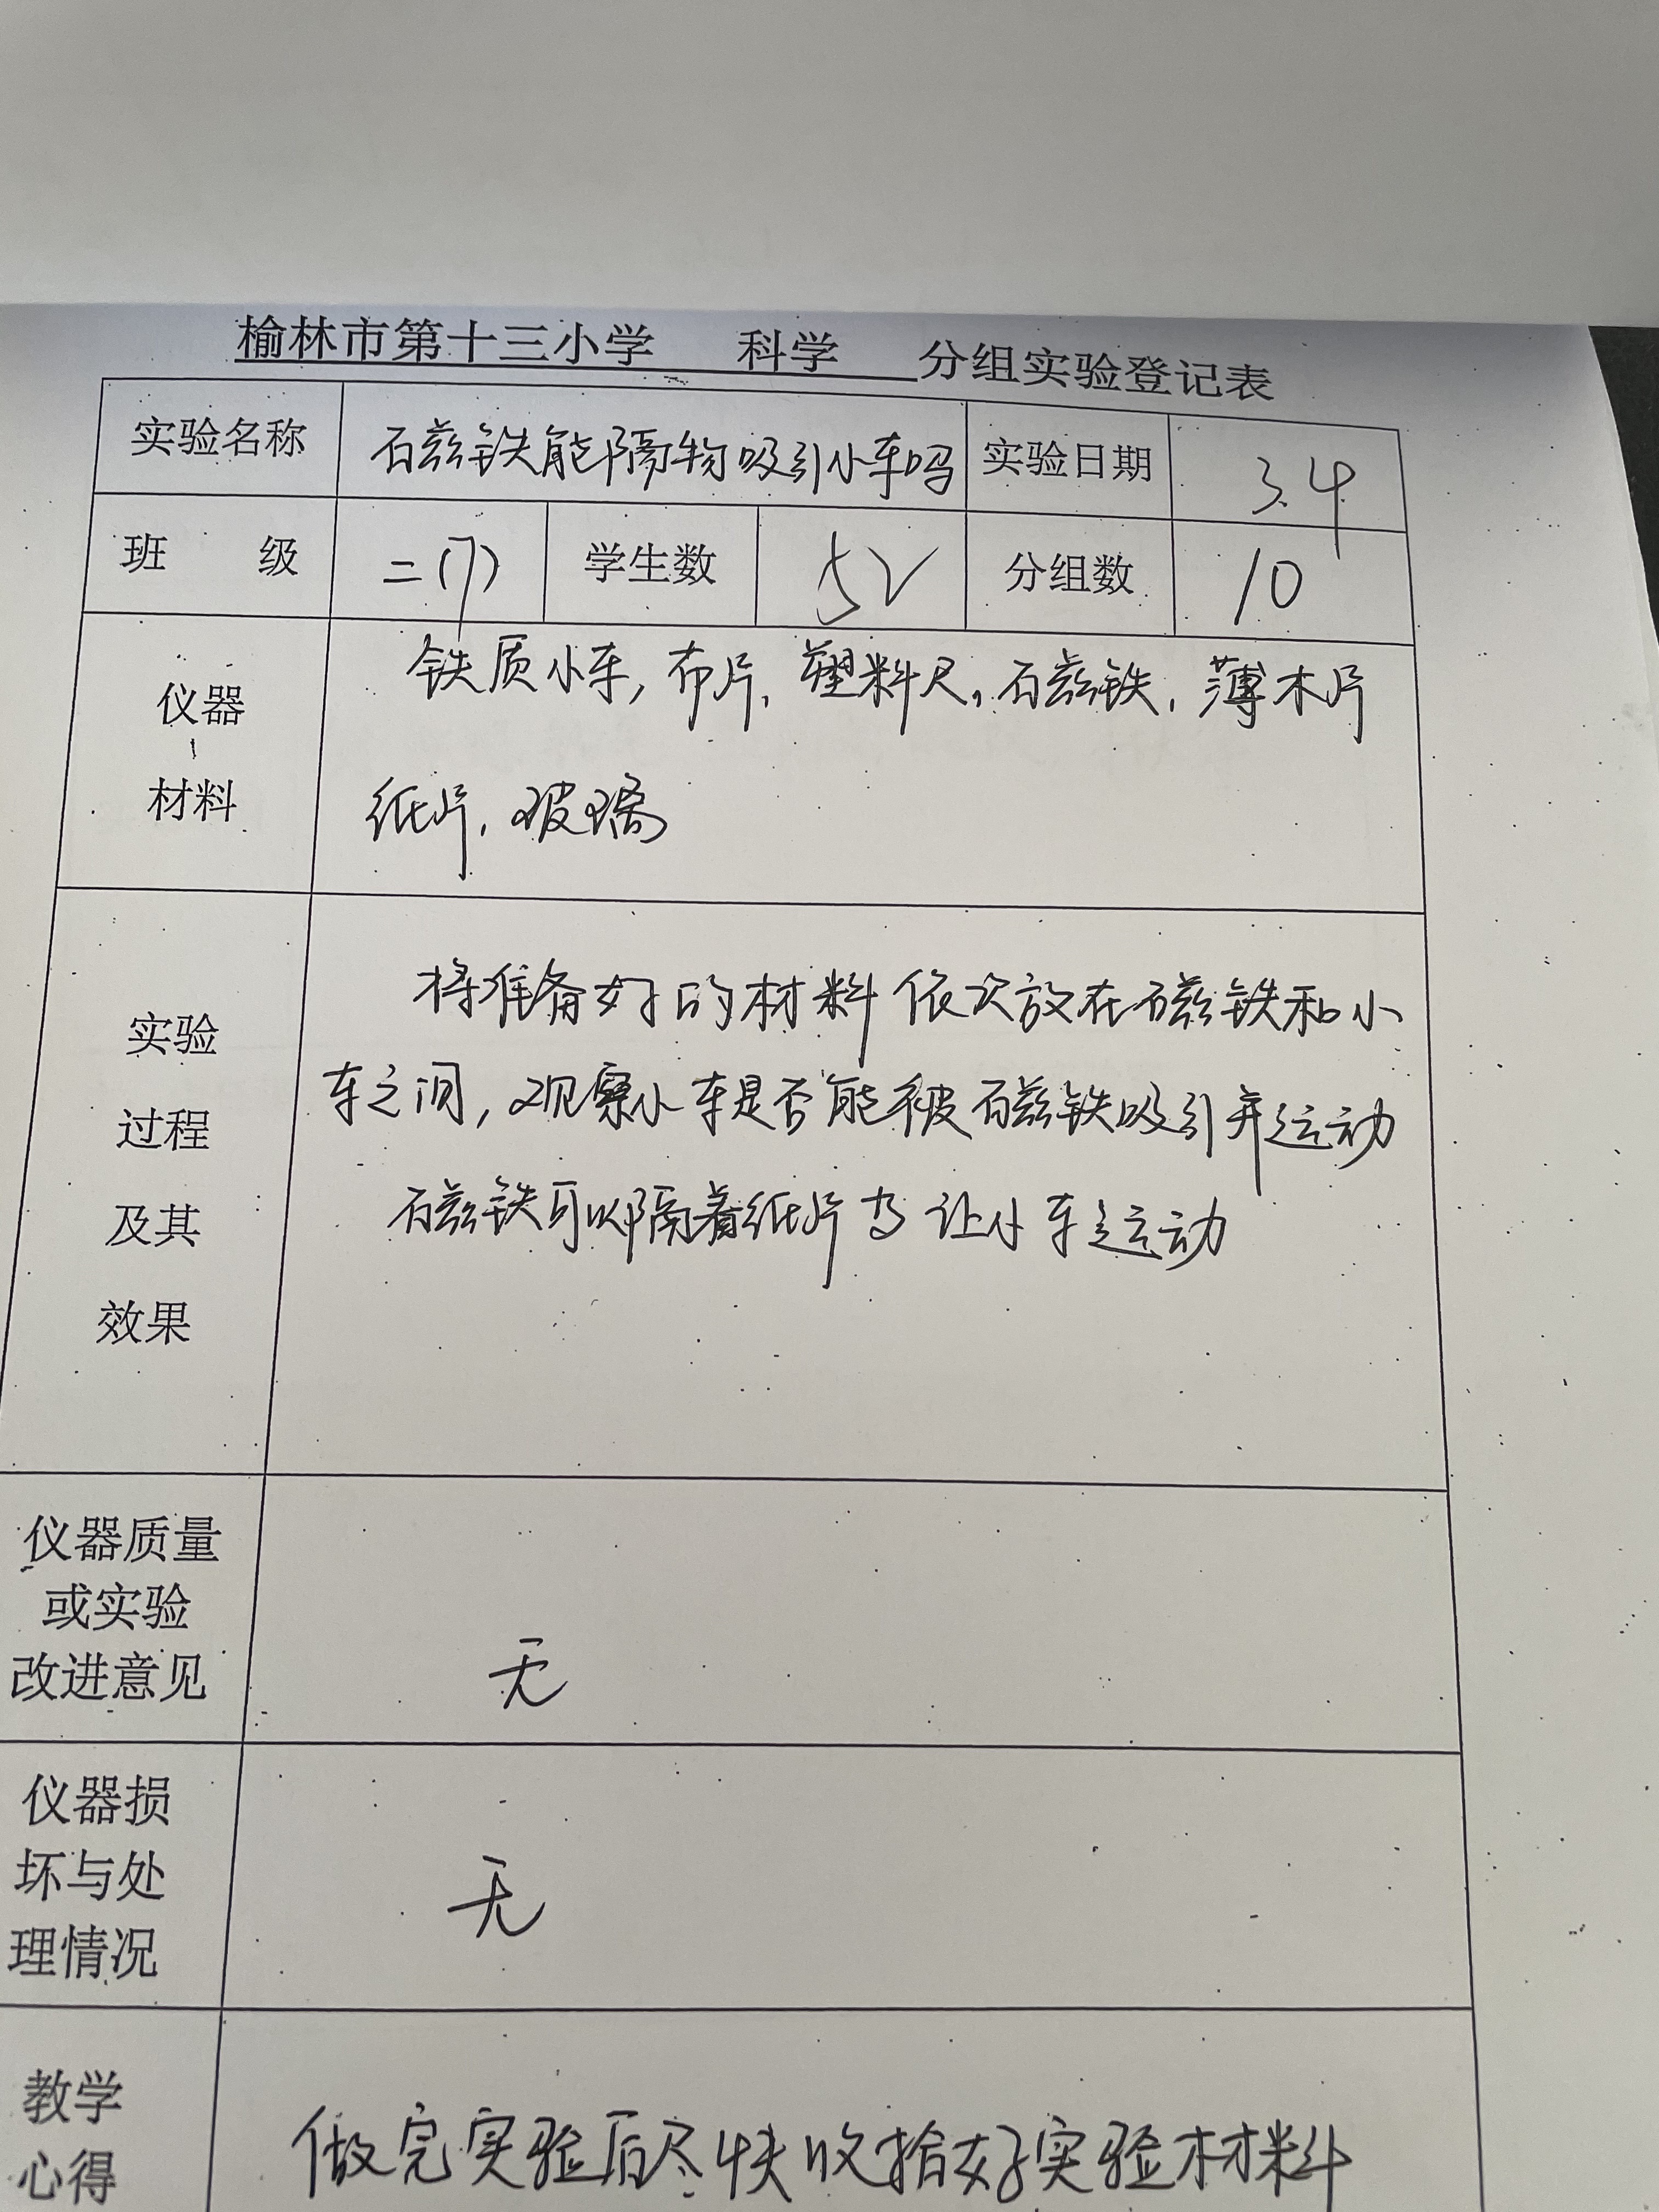 榆林市第十三小学 科学 分组实验登记表
实验名称 石磁铁能隔物吸引小车吗 实验日期 3.4
班 级 二(7) 学生数 52 分组数 10
仪器
材料
铁质小车, 布片, 塑料尺, 石磁铁, 薄木片
纸片, 玻璃
实验
过程
及其
效果
将准备好的材料依次放在石磁铁和小
车之间, 观察小车是否能被石磁铁吸引并运动
石磁铁可以隔着纸片 让小车运动
仪器质量
或实验
改进意见
无
仪器损
坏与处
理情况
无
教学
心得
做完实验后尽快收拾好实验材料